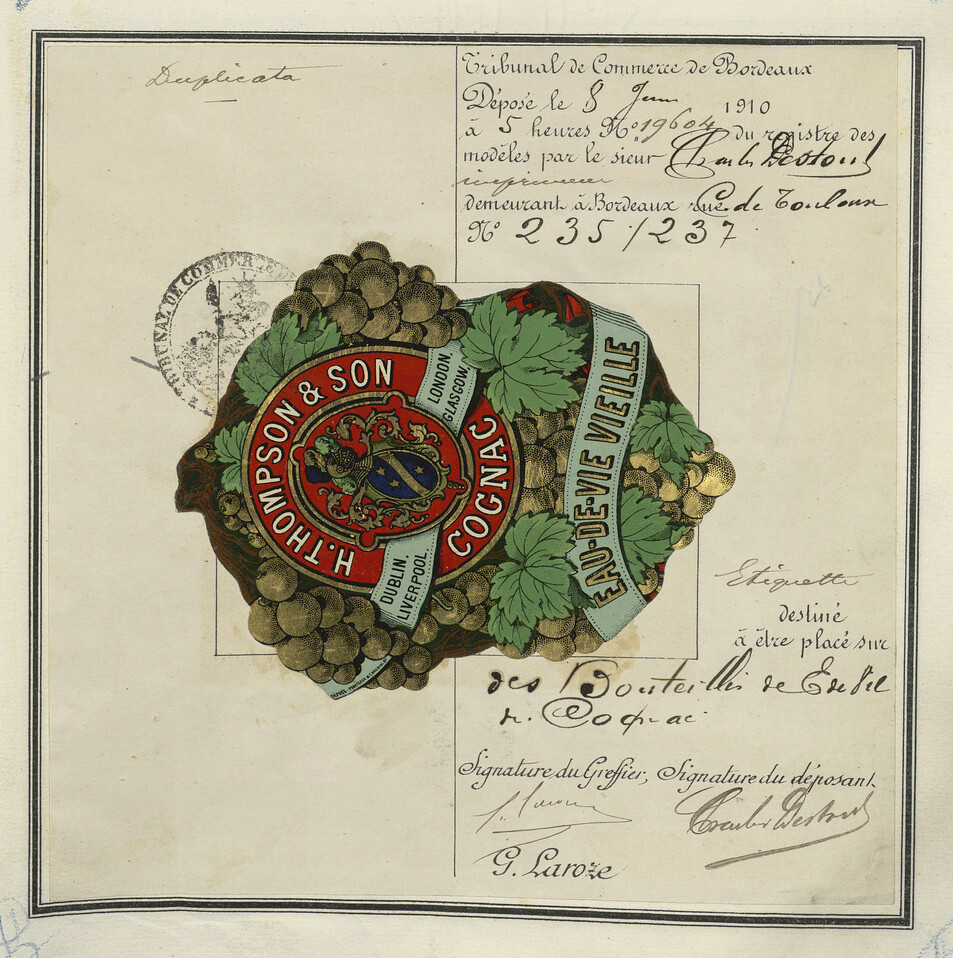 Duplicata
Tribunal de Commerce de Bordeaux
Déposé le 8 Juin 1910
à 5 heures Nº 19604 du registre des
modèles par le sieur Charles Destouil
imprimeur
demeurant à Bordeaux rue de Toulouse
Nº 235/237
TRIBUNAL DE COMMERCE DE
H. THOMPSON & SON
COGNAC
LONDON.
GLASGOW.
DUBLIN
LIVERPOOL
EAU-DE-VIE VIEILLE
Etiquette
destiné
à être placé sur
des Bouteilles de
de Cognac
Signature du Greffier, Signature du déposant.
Charles Destouil
G. Laroze